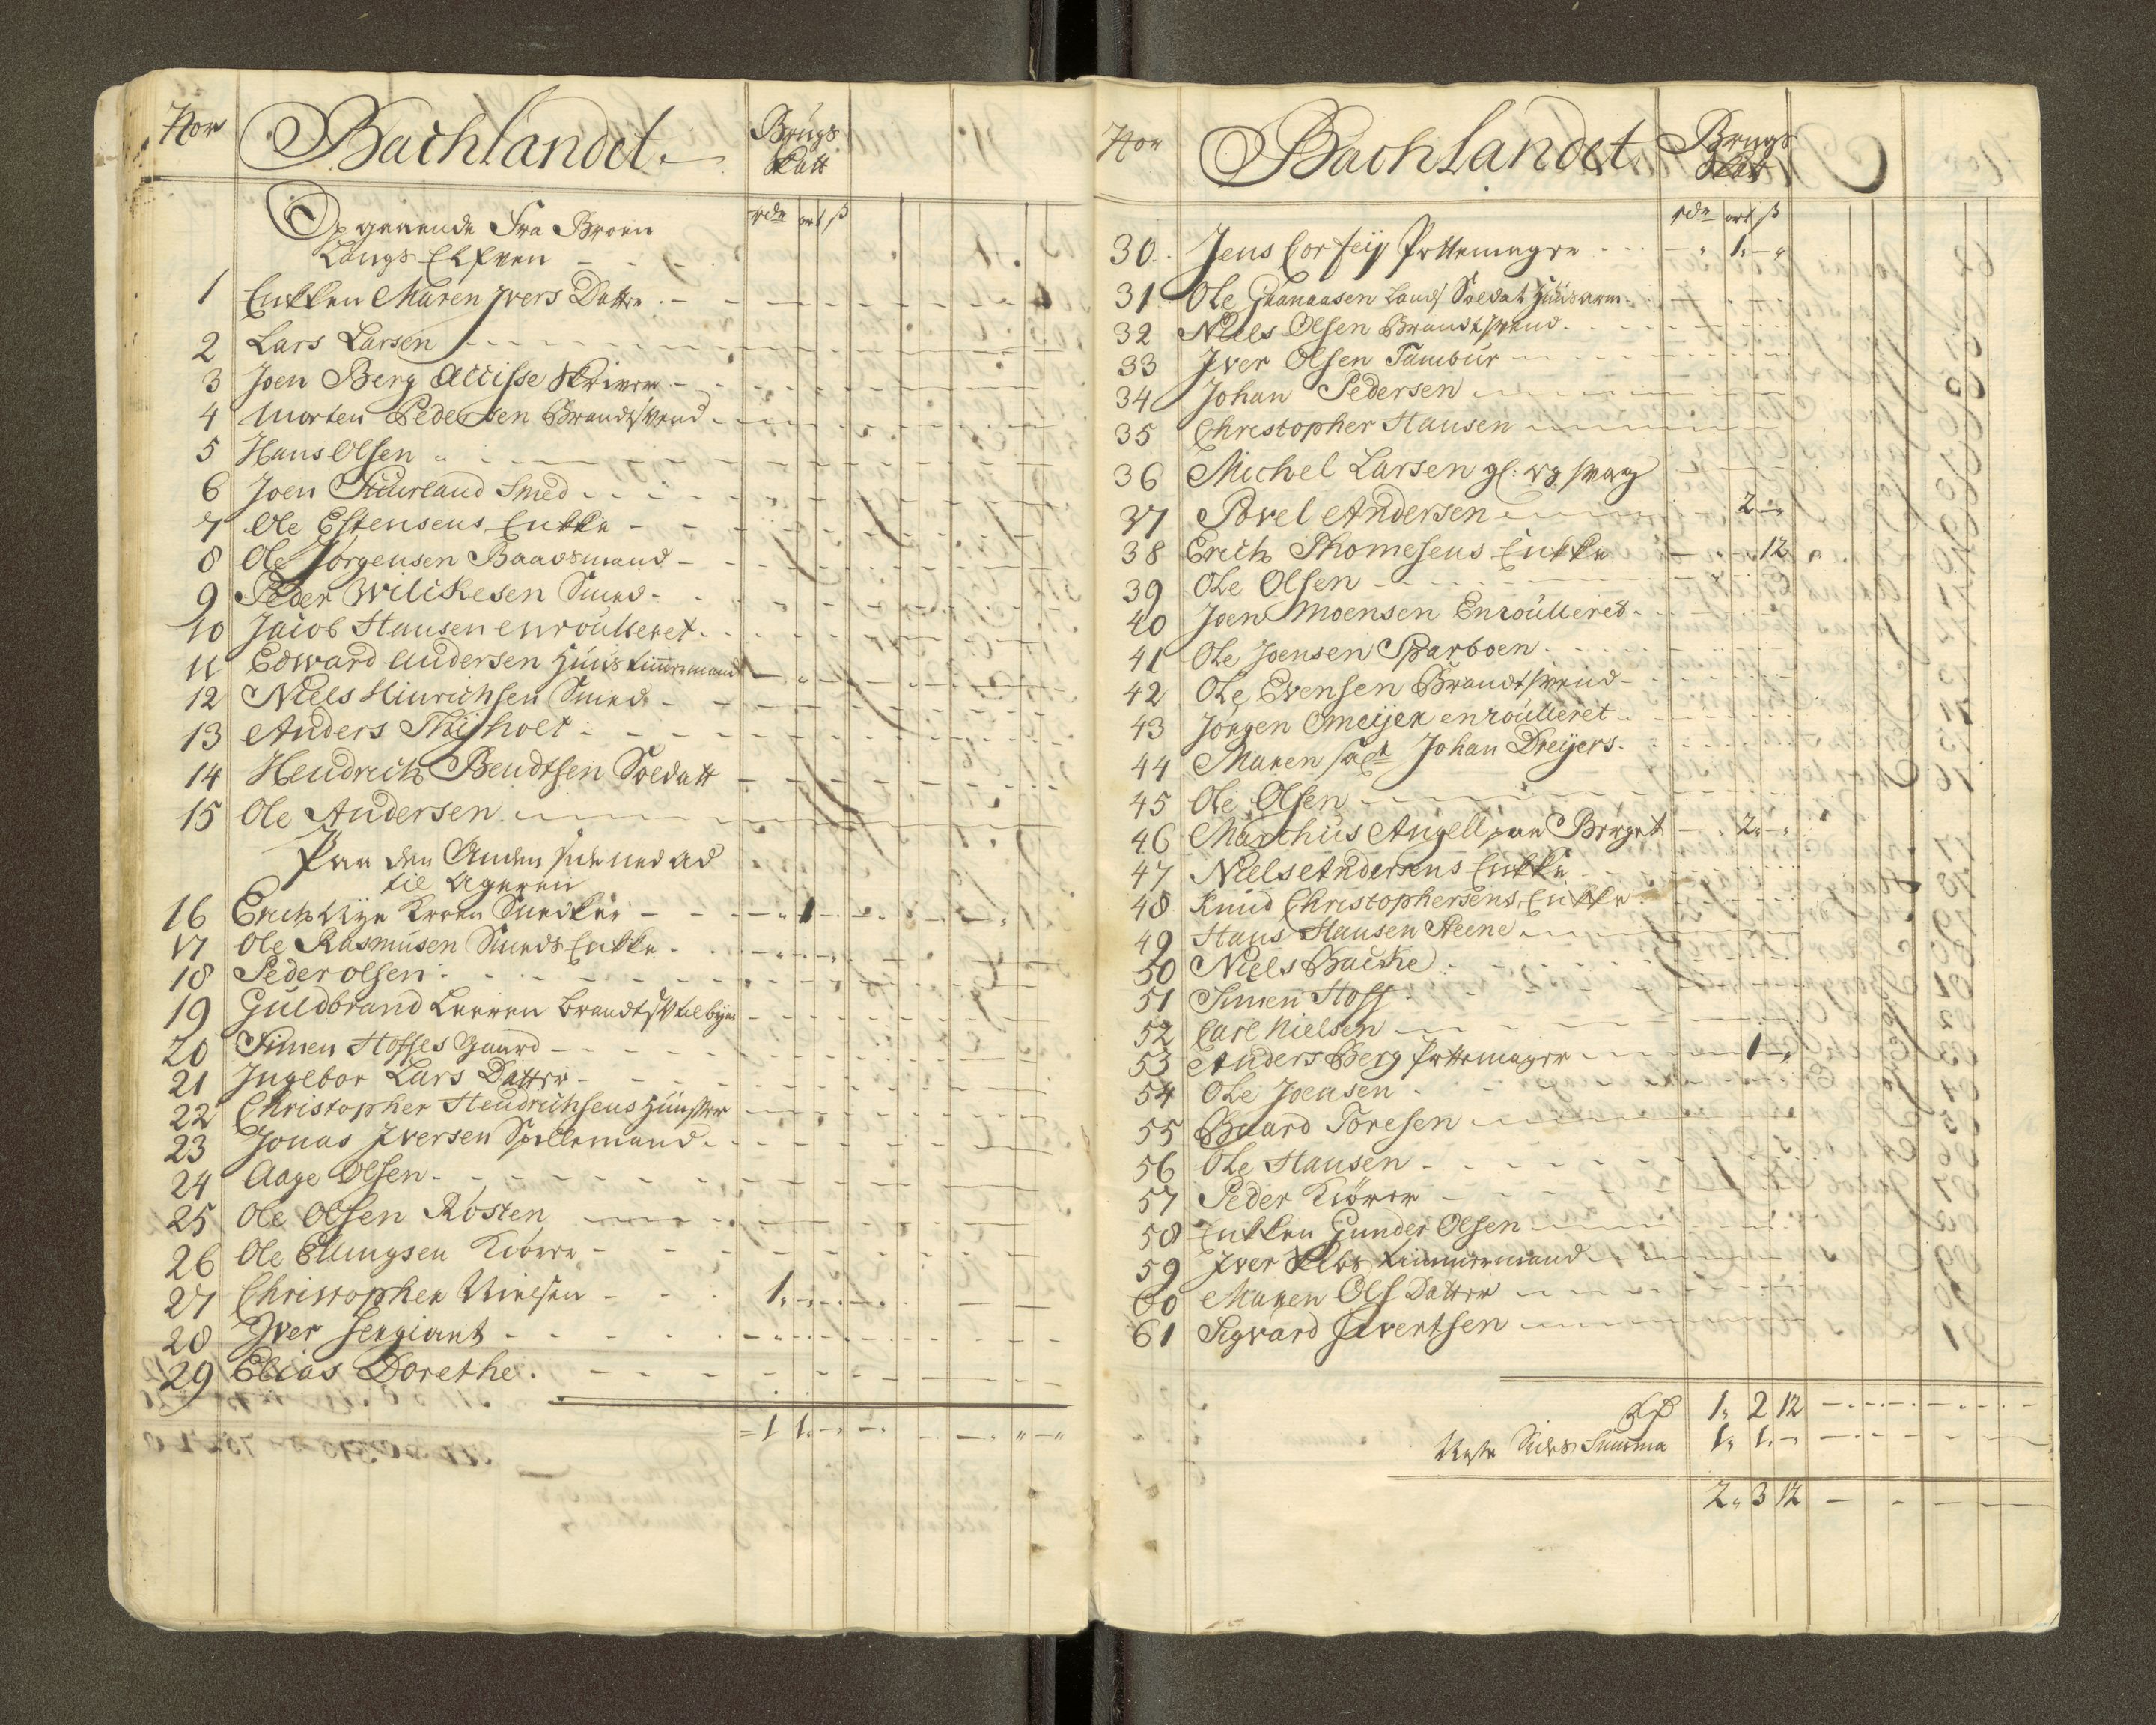 Nor Bachlandet. Brugs Skatt
Opgaaende Fra Broen rdr ort ß
Langs Elfven
1 Enkken Maren Ivers Datter
2 Lars Larsen
3 Joen Berg Accisse Skriver
4 Morten Pedersen Brandtsvend
5 Hans Olsen
6 Joen Smed
7 Ole Estensens Enkke
8 Ole Jörgensen Baadsmand
9 Peder Wilckesen Smed
10 Jacob Hansen enroulleret
11 Edward Andersen Huus timmermand
12 Niels Hinrichsen Smed
13 Anders Thijholt
14 Hendrich Bendtsen Soldatt
15 Ole Andersen
Paa den Anden side ned ad
til Ageren
16 Erich Nye Kroen Snedker 1
17 Ole Rasmusen Smeds Enkke
18 Peder olsen
19 Guldbrand Leeren
20 Simen Hoffes Gaard
21 Ingebor Lars Datter
22 Christopher Hendrichsens
23 Jonas Iversen Spillemand
24 Aage Olsen
25 Ole Olsen Rosten
26 Ole Ellingsen Kiörer
27 Christopher Nielsen 1
28 Iver Sergiant
29 Elias Dorethe
1 1
Nor Bachlandet Brugs Skatt
rdr ort ß
30 Jens Corfeij Pottemager 1
31 Ole Gaanaasen Lands Soldat Huusarm
32 Niels Olsen Brandtsvend
33 Iver Olsen Tambur
34 Johan Pedersen
35 Christopher Hansen
36 Michel Larsen gl: og svag
37 Povel Andersen 2
38 Erich Thomesens Enkke 12
39 Ole Olsen
40 Joen Moensen Enroulleret
41 Ole Joensen Sparboen
42 Ole Evensen Brandtsvend
43 Jörgen Omeijer enroulleret
44 Maren Johan Dreijers
45 Ole Olsen
46 Marchus Angell paa Berget 2
47 Niels Andersens Enkke
48 Knud Christophersens Enkke
49 Hans Hansen Steene
50 Niels Backe
51 Simen Hoff
52 Carl Nielsen
53 Anders Berg Pottemager 1
54 Ole Joensen
55 Baard Toresen
56 Ole Hansen
57 Peder Kiörer
58 Enkken Gunder Olsen
59 Iver timmermand
60 Maren Ols Datter
61 Sigvard Sivertsen
1 2 12
Sides Summa 1 1
2 3 12